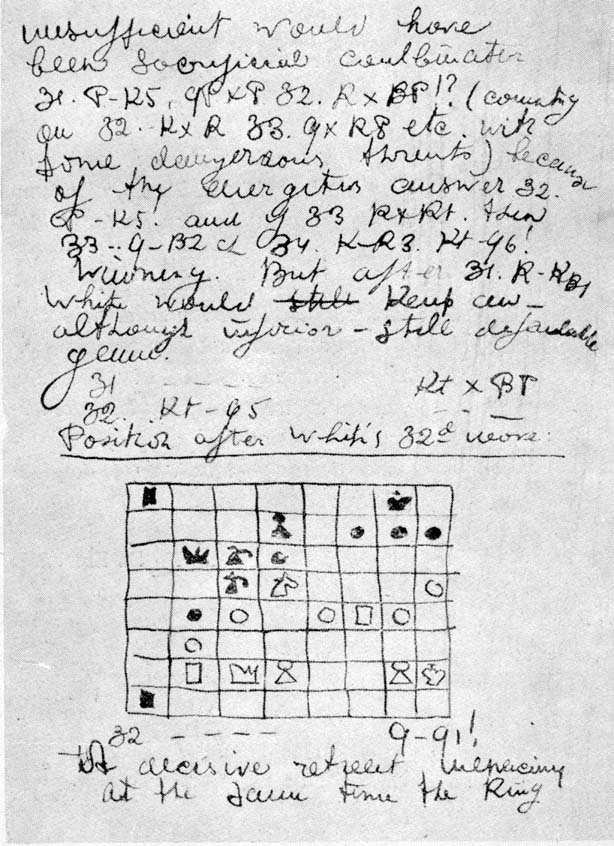 unsufficient would have
been sacrificial combination
31. P-K5, QPxP 32. RxBP!? (counting
on 32.. KxR 33. QxRP etc. with
some dangerous threats) because
of the energetic answer 32.
P-K5. and if 33 RxKt. then
33.. Q-B2 ch 34. K-R3. Kt-Q6!
Winning. But after 31. R-KB1
White would still keep an -
although inferior - still defendable
game.
31 - - - - - Kt x BP
32. Kt-Q5 - - -
Position after White's 32d move:
32 - - - - Q-Q1!
A decisive retreat menacing
at the same time the King